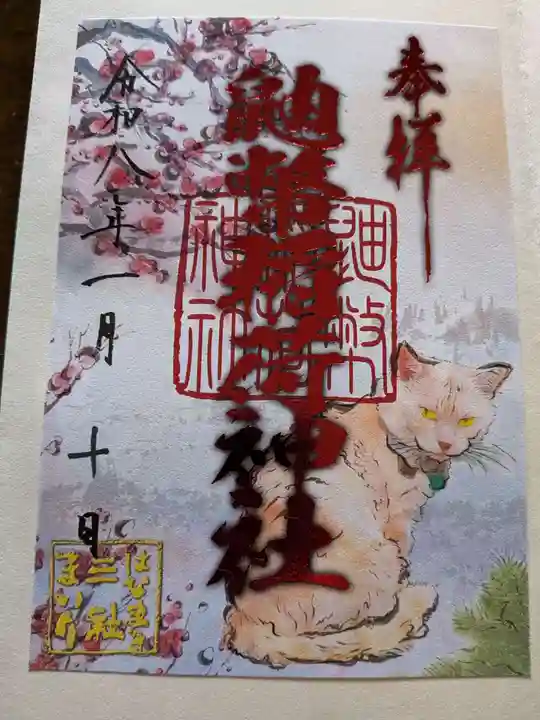 奉拝
鼬幣稲荷神社
令和八年一月十日
はなまき
三社
まいり